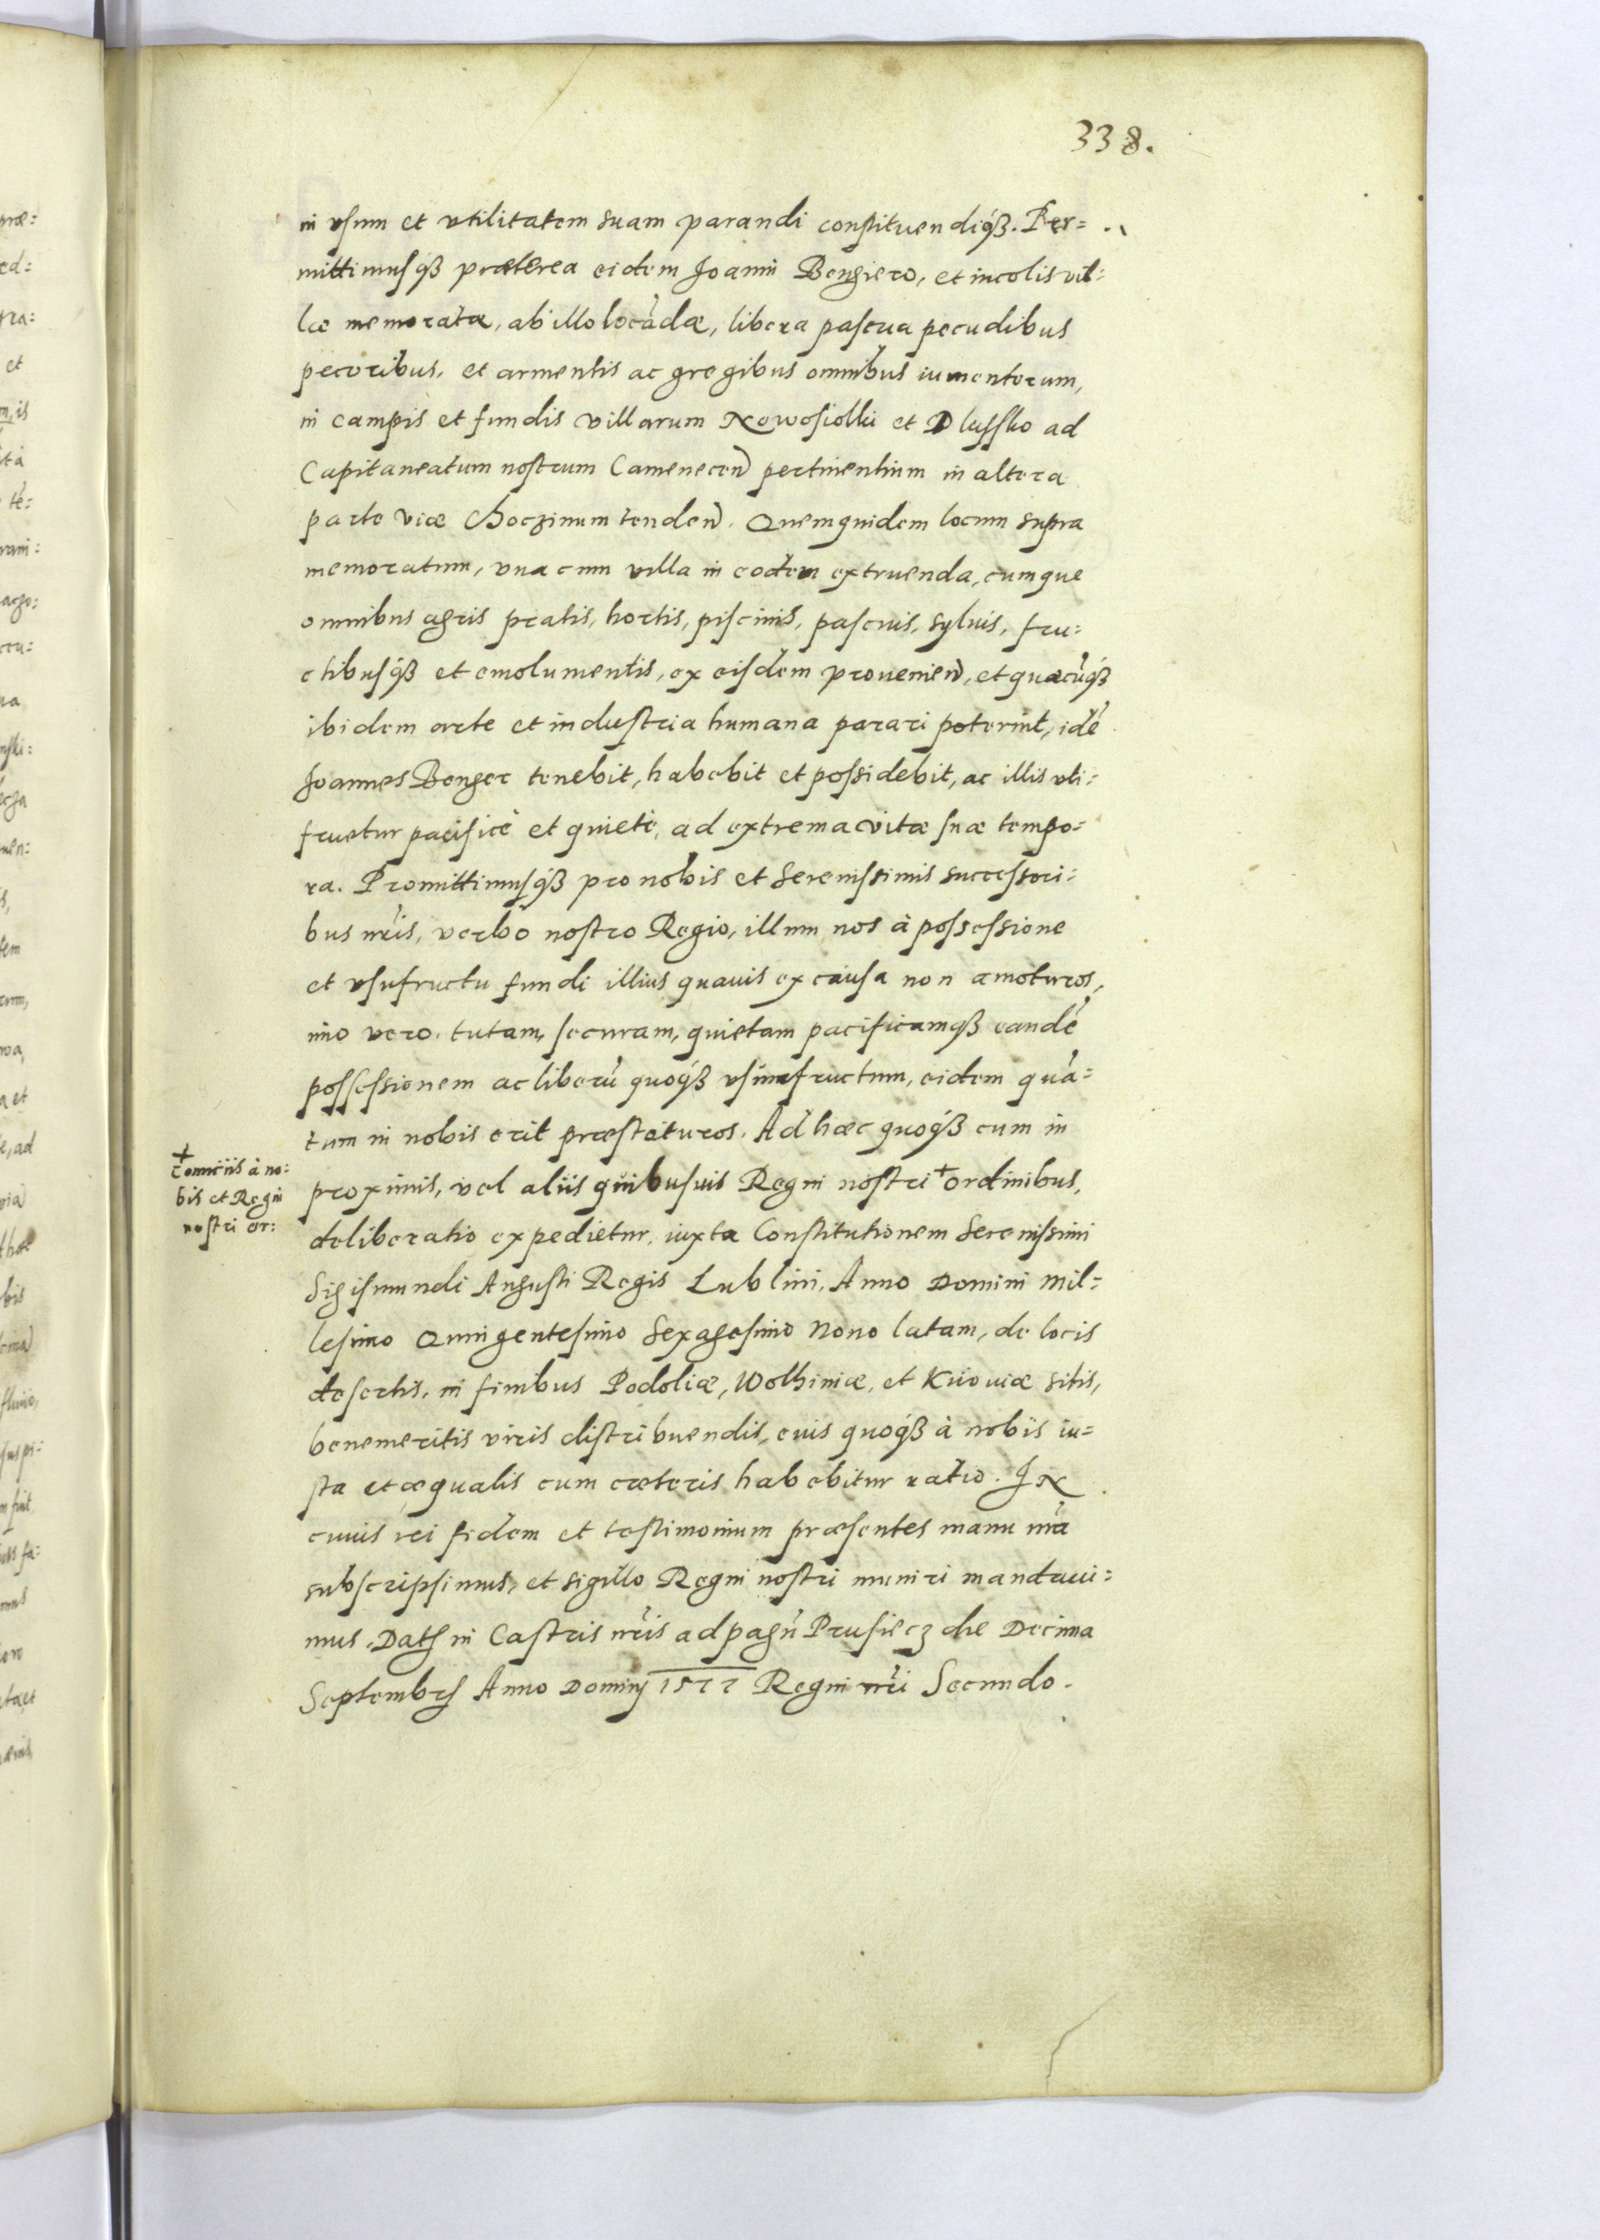 338.
in vsum et vtilitatem suam parandi constituendiq́ꝫ. Per=
mittimusq́ꝫ præterea eidem Joanni Bengiero, et incolis vil=
læ memoratæ, ab illo locãdæ, libera pascua pecudibus
pecoribus, et armentis ac gregibus omnibus iumentorum,
in campis et fundis villarum Nowosiolki et Dlussko ad
Capitaneatum nostrum Camenecen̄ pertinentium in altera
parte viæ Choczimum tenden̄. Quemquidem locum supra
memoratum, vna cum villa in eodem extruenda, cumque
omnibus agris pratis, hortis, piscinis, pascuis, syluis, fru=
ctibusq́ꝫ et emolumentis, ex eisdem prouenien̄, et quæcũq́ꝫ
ibidem arte et industria humana parari poterint, idẽ
Joannes Benger tenebit, habebit et possidebit, ac illis vti=
fruetur pacificè et quietè, ad extrema vitæ suæ tempo=
ra. Promittimusq́ꝫ pro nobis et Serenissimis successori=
bus nr̃is, verbo nostro Regio, illum nos à possessione
et vsufructu fundi illius quauis ex causa non amoturos,
imo vero, tutam, securam, quietam pacificamqꝫ eandẽ
possessionem ac liberũ quoq́ꝫ vsumfructum, eidem quã=
tum in nobis erit præstaturos. Ad hæc quoq́ꝫ cum in
proximis, vel aliis quibusuis Regni nostri + ordinibus,
+
comitiis à no=
bis et Regni
nostri or:
deliberatio expedietur, iuxta Constitutionem Serenissimi
Sigismundi Augusti Regis Lublini, Anno Domini Mil=
lesimo Quingentesimo Sexagesimo Nono latam, de locis
desertis, in finibus Podoliæ, Wolhiniæ, et Kiiouiæ sitis,
benemeritis viris distribuendis, euis quoq́ꝫ à nobis iu=
sta et æqualis cum cæteris habebitur ratio. IN
cuius rei fidem et testimonium præsentes manu nr̃a
subscripsimus, et sigillo Regni nostri muniri mandaui=
mus. Datꝭ in Castris nr̃is ad pagũ Prusiecz die Decima
Septembrꝭ Anno Dominj 1577 Regni nr̃i Secundo.